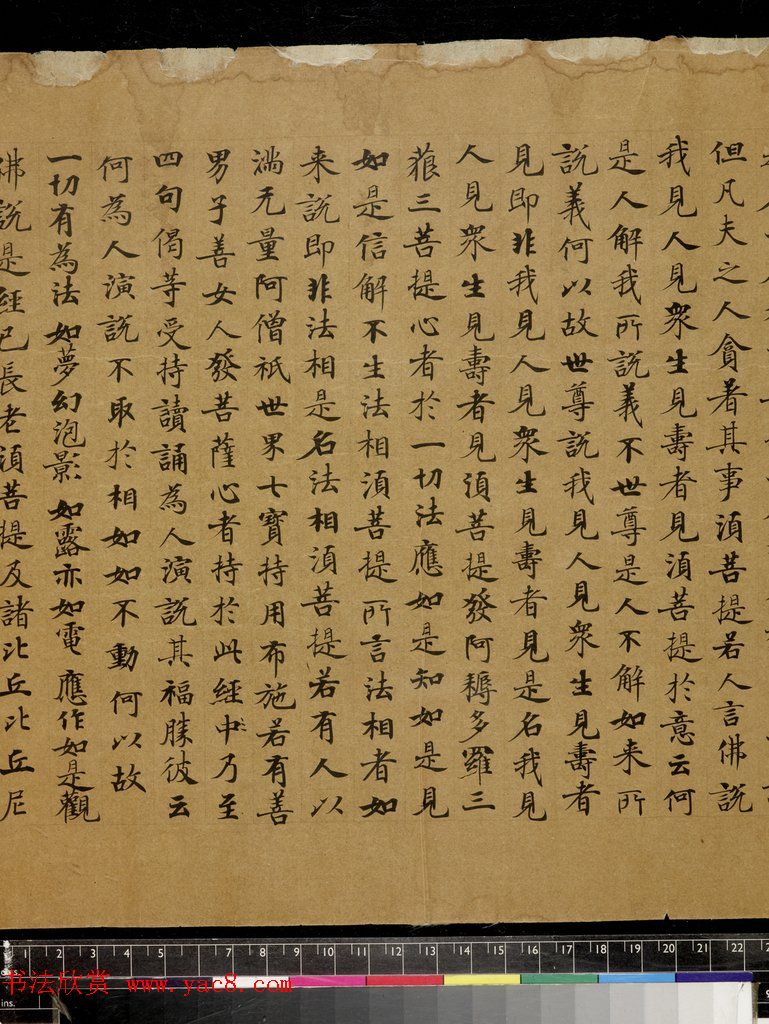 但凡夫之人貪著其事湏菩提若人言佛說
我見人見衆生見壽者見湏菩提於意云何
是人解我所說義不世尊是人不解如来所
說義何以故世尊說我見人見衆生見壽者
見即非我見人見衆生見壽者見是名我見
人見衆生見壽者見湏菩提發阿耨多羅三
藐三菩提心者於一切法應如是知如是見
如是信解不生法相湏菩提所言法相者如
来說即非法相是名法相湏菩提若有人以
滿无量阿僧祇世界七寶持用布施若有善
男子善女人發菩薩心者持於此經中乃至
四句偈等受持讀誦為人演說其福勝彼云
何為人演說不取於相如如不動何以故
一切有為法如夢幻泡影 如露亦如電 應作如是觀
佛說是經已長老湏菩提及諸比丘比丘尼
1 2 3 4 5 6 7 8 9 10 11 12 13 14 15 16 17 18 19 20 21 22
书法欣赏 www.yac8.com
ins.